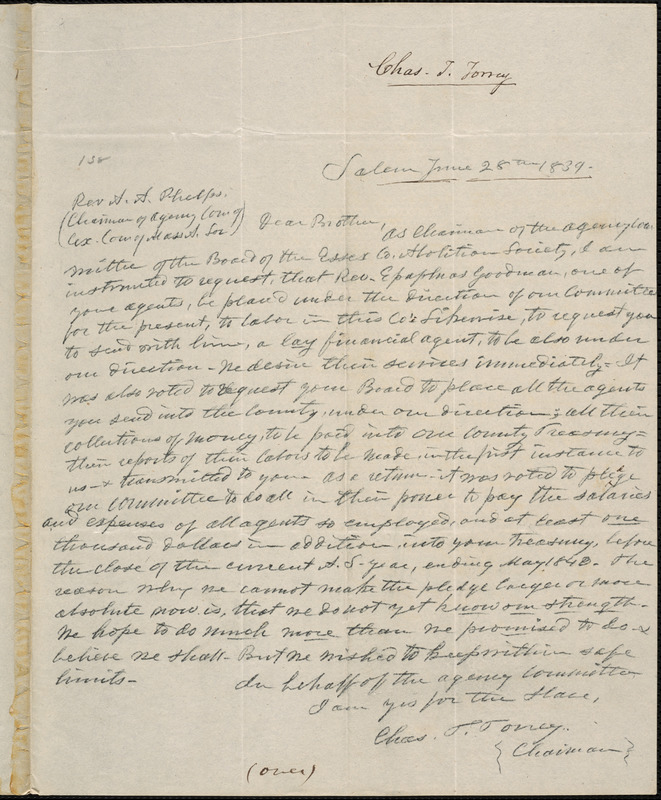 Chas. T. Torrey
Salem June 28th 1839.
Rev A. A. Phelps.
(Chairman of Agency Com of
Ex. Com of Mass A. Soc)
Dear Brother,
As Chairman of the agency Com
mittee of the Board of the Essex Co. Abolition Society, I am
instructed to request, that Rev. Epaphras Goodman, one of
your agents, be placed under the direction of our Committee
for the present, to labor in this Co: Likewise, to request you
to send with him, a lay financial agent, to be also under
our direction - We desire their services immediately - It
was also voted to request your Board to place all the agents
you send into the County, under our direction; all their
collections of money, to be paid into our County Treasury =
their reports of their labors to be made, in the first instance to
us - & transmitted to you - As a return - it was voted to pledge
our Committee to do all in their power to pay the salaries
and expenses of all agents so employed, and at least one
thousand dollars in addition, into your Treasury, before
the close of the current A. S. year, ending May 1840. The
reason why we cannot make the pledge larger or more
absolute now is, that we do not yet know our strength -
We hope to do much more than we promised to do - &
believe we shall - But we wished to keep within safe
limits -
In behalf of the agency Committee
I am yrs for the Slave,
Chas. T. Torrey.
{Chairman}
(over)